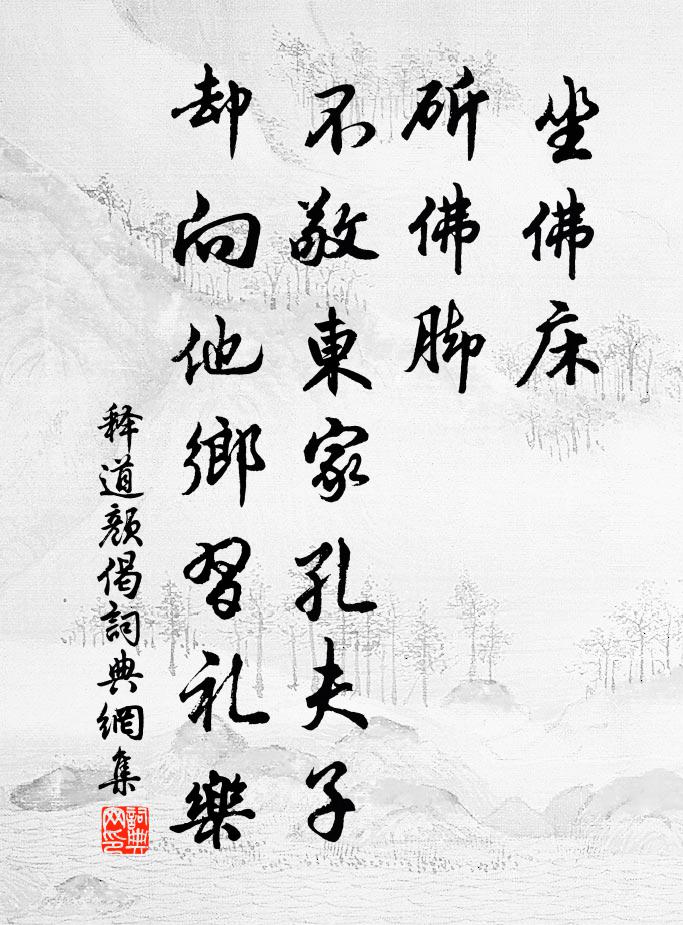 坐佛床
斫佛脚
不敬東家孔夫子
却向他鄉習礼樂
释道颜偈詞典網集
詞典网印